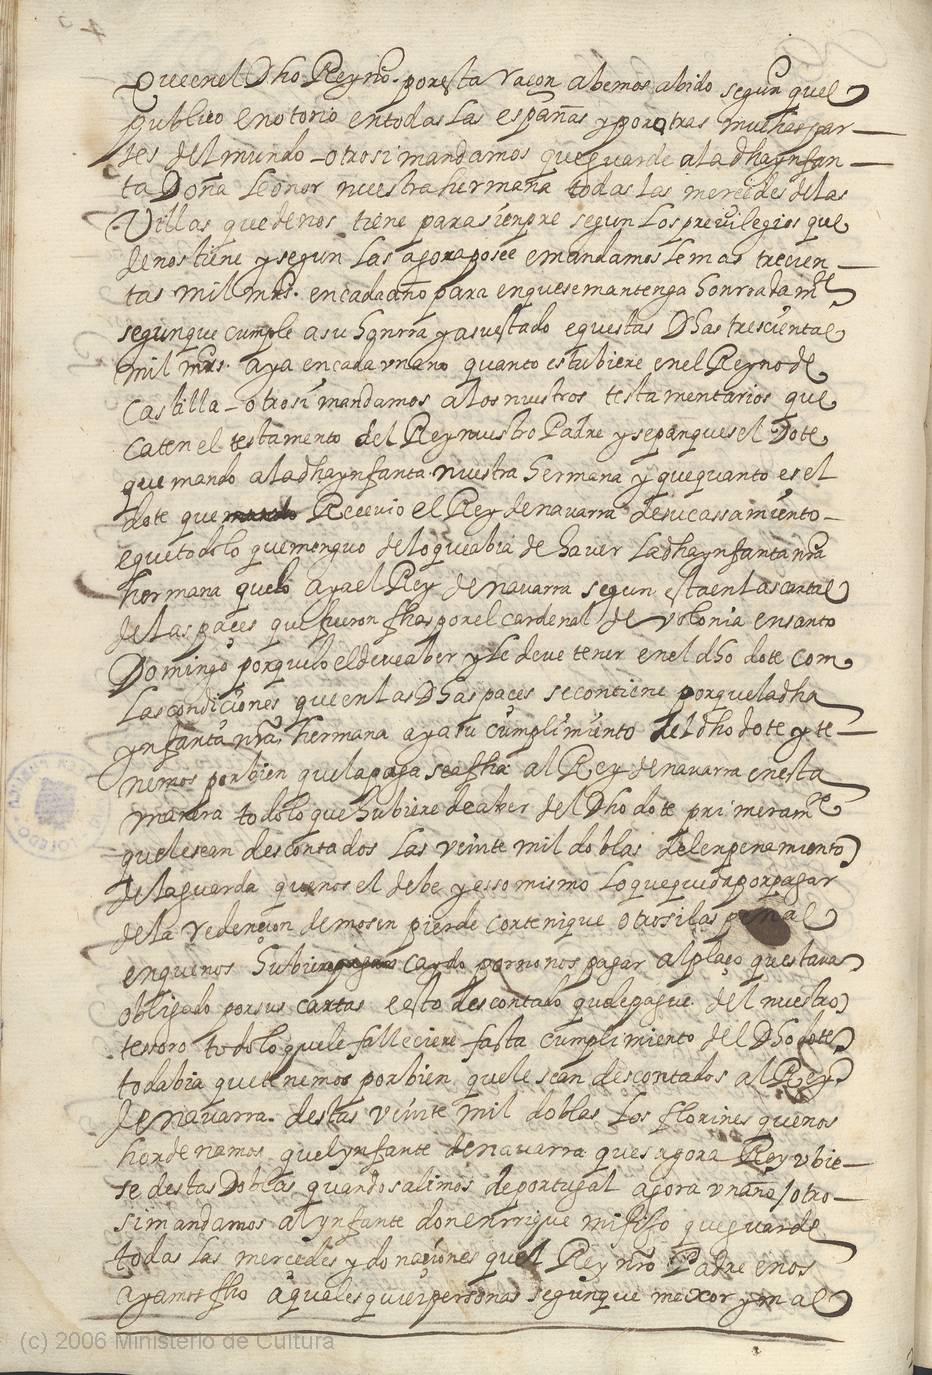 Que en el Dho Reyno. por esta raçon abemos abido segun quel
publico enotorio entodas las españas y por otras muchas par-
tes del mundo - otrosi mandamos que guarde alа dha ynfan-
ta Doña Leonor nuestra hermana todas las mercedes delas
Villas que de nos tiene para sienpre segun los previlegios que
de nos tiene y segun las agora posee e mandamosle mas trecien-
tas mil mrs. encada año para en que se mantenga honrrada mte
segun que cumple a su honrra y a su estado e questas Dhas trescientas
mil mrs. aya encada vn año quanto estubiere en el Reyno de
Castilla - otrosi mandamos a los nuestros testamentarios que
caten el testamento del Rey nuestro Padre y sepan ques el Dote
que mando ala dha ynfanta nuestra hermana y que quanto es el
dote que Recevio el Rey de navarra de su cassamiento -
e que todo lo que menguo delo que abia de haver la dha ynfanta nra
hermana que lo aya el Rey de navarra segun esta en las cartas
de las paçes que fueron fhas por el cardenal de volonia en santo
Domingo por que lo el deve aber y le deve tener en el dho dote com
las condiciones que en las Dhas paces se contiene por que la dha
ynfanta nra hermana aya su cumplimiento del dho dote y te-
nemos por bien que la paga sea fha al Rey de navarra en esta
manera todo lo que hubiere de aber del Dho dote primeramte
que le sean descontados las veinte mil doblas del enpenamiento
de la guarda que nos el debe y esso mismo lo que queda por pagar
de la redencion de mosen pierde cortenique otrosi las penas
en que nos hubiere caydo por nonos pagar al plaço que estava
obligado por sus cartas e esto descontado que le pague del nuestro
tesoro todo lo que le falleciere fasta cumplimiento del Dho dote
todabia que tenemos por bien que le sean descontados al Rey
de navarra. destas veinte mil doblas los florines que nos
hordenamos quel ynfante de navarra ques agora Rey vbie-
se destas Doblas quando salimos de portugal agora vn año / otro-
si mandamos al ynfante don enrrique mi fijo que guarde
todas las mercedes y donaçiones quel Rey nro Padre e nos
ayamos fho a quales quier personas segun que mexor y mas
(c) 2006 Ministerio de Cultura